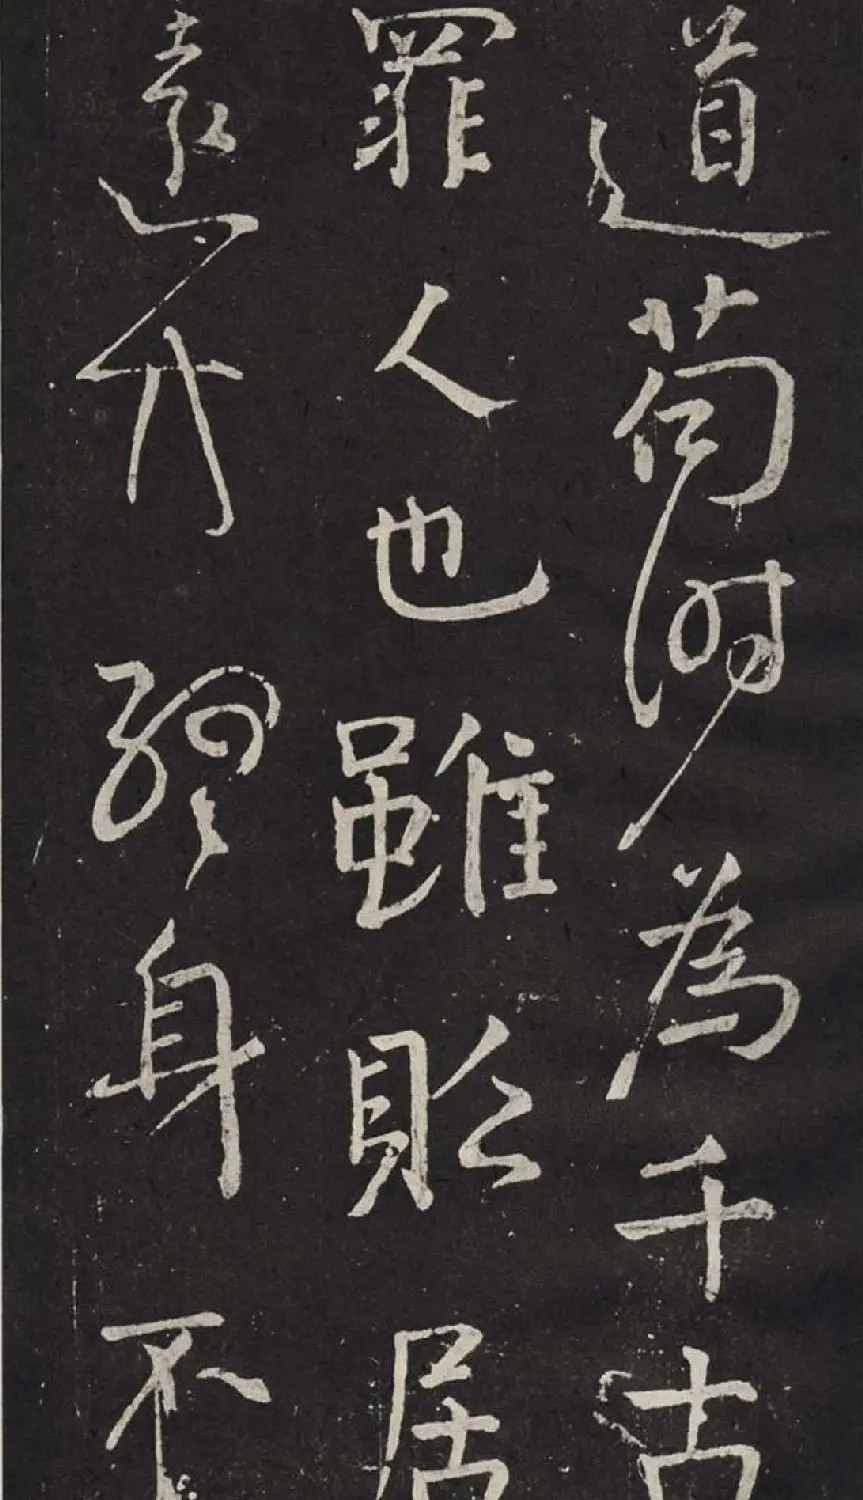 道苟時為千古
罪人也雖貶居
遠方終身不